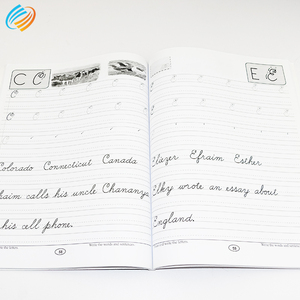 C C
Colorado Connecticut Canada
Chaim calls his uncle Chananya
his cell phone.
E E
Elazer Efraim Esther
Elky wrote an essay about
England.